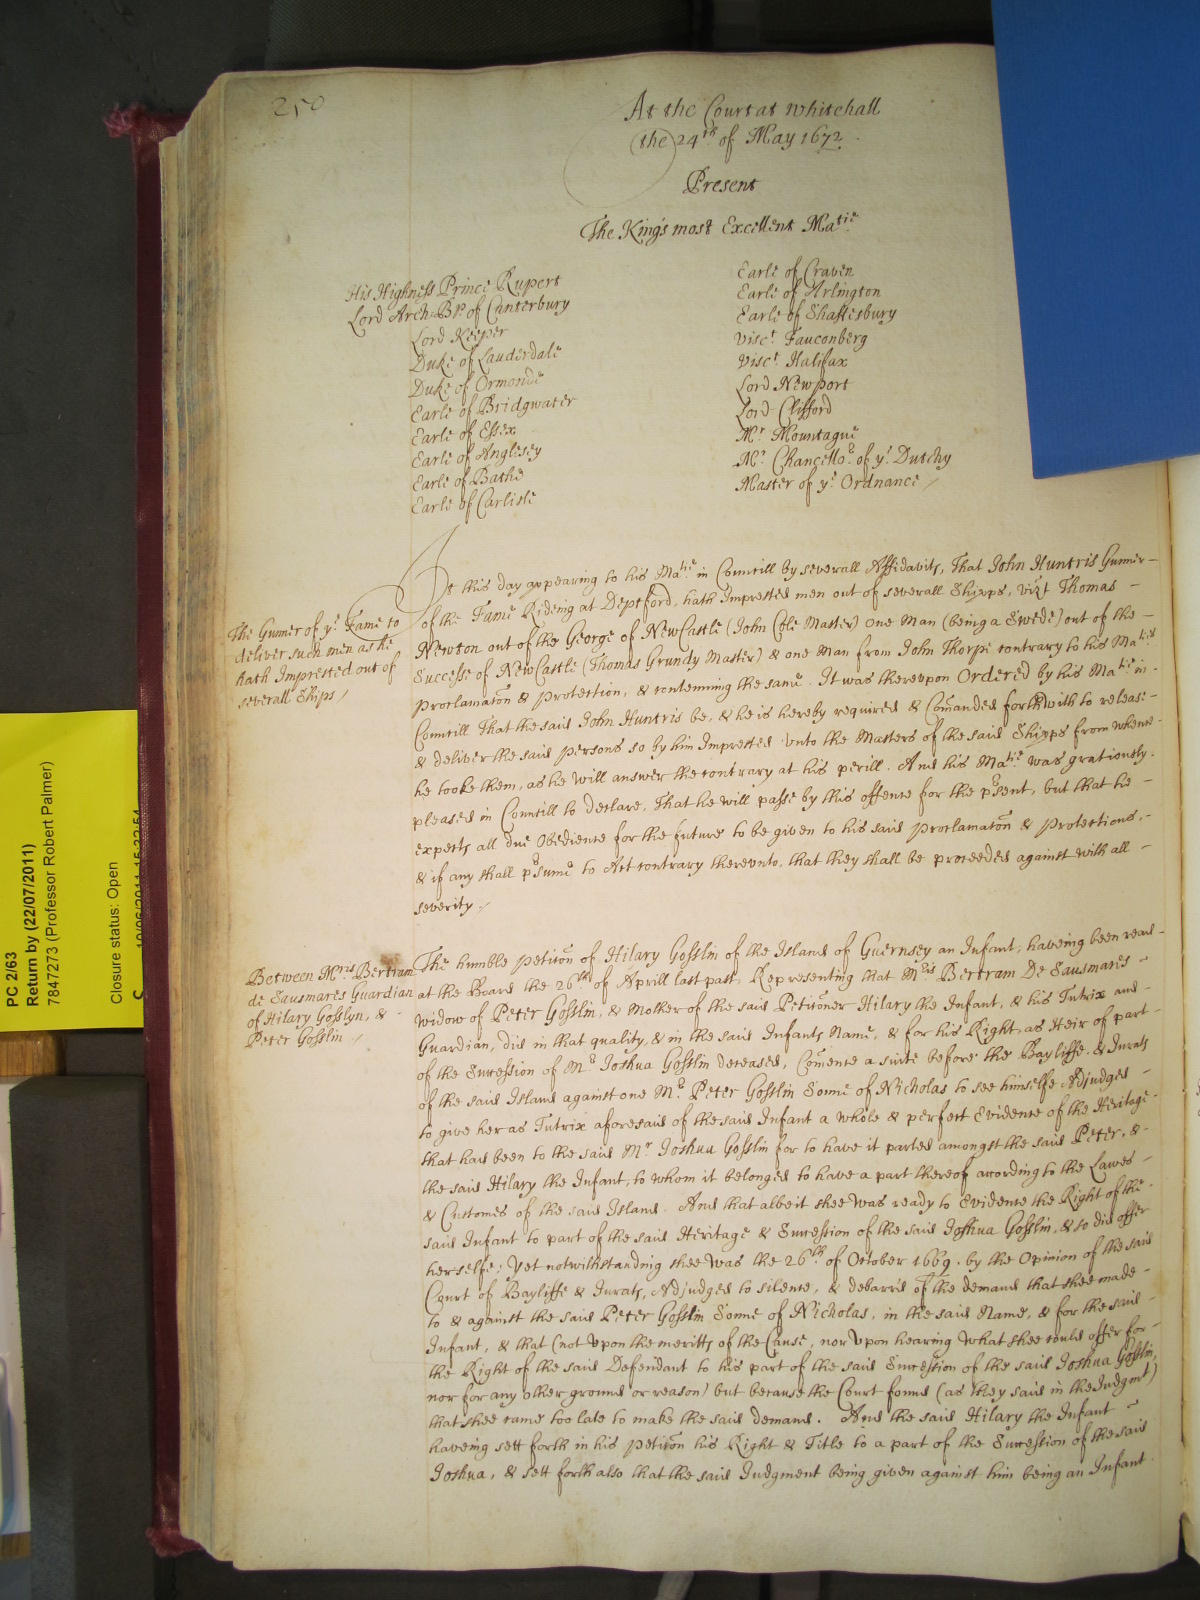 250
At the Court at Whitehall
the 24th of May 1672.
Present
The Kings most Excellent Matie
His Highness Prince Rupert
Lord Arch-Bp of Canterbury
Lord Keeper
Duke of Lauderdale
Duke of Ormonde
Earle of Bridgwater
Earle of Essex
Earle of Anglesey
Earle of Bathe
Earle of Carlisle
Earle of Craven
Earle of Arlington
Earle of Shaftesbury
Visct Fauconberg
Visct Halifax
Lord Newport
Lord Clifford
Mr Mountague
Mr Chancellor of ye Dutchy
Master of ye Ordnance /
The Gunner of ye Fame to
deliver such men as he
hath Imprested out of
severall Ships /
It this day appearing to his Matie in Councill by severall Affidavits, That John Huntris Gunner
of the Fame Rideing at Deptford, hath Imprested men out of severall Shipps, vizt Thomas
Newton out of the George of NewCastle (John Cole Master) one Man (being a Swede) out of the
Successe of NewCastle (Thomas Grundy Master) & one Man from John Thorpe contrary to his Maties
Proclamaton & Protection, & contemning the same. It was thereupon Ordered by his Matie in
Councill That the said John Huntris be, & he is hereby required & Comanded forthwith to release
& deliver the said persons so by him Imprested unto the Masters of the said Shipps from whence
he tooke them, as he will answer the contrary at his perill. And his Matie was gratiously
pleased in Councill to declare, That he will passe by this offence for the psent, but that he
expects all due Obedience for the future to be given to his said Proclamaton & Protections,
& if any shall psume to Act contrary thereunto, that they shall be proceeded against with all
severity /
Between Mrs Bertram
de Sausmares Guardian
of Hilary Gosslyn, &
Peter Gosslin /
The humble Petiton of Hilary Gosslin of the Island of Guernsey an Infant, haveing been read
at the Board the 26th of Aprill last past, Representing that Mris Bertram De Sausmares
widow of Peter Gosslin, & Mother of the said Petitoner Hilary the Infant, & his Tutrix and
Guardian, did in that quality, & in the said Infants Name, & for his Right, as Heir of part
of the Succession of Mr Joshua Gosslin deceased, Comence a suite before the Bayliffe, & Jurats
of the said Island against one Mr Peter Gosslin Sonne of Nicholas to see himselfe Adjudged
to give her as Tutrix aforesaid of the said Infant a whole & perfect Evidence of the Heritage
that had been to the said Mr Joshua Gosslin for to have it parted amongst the said Peter, &
the said Hilary the Infant, to whom it belonged to have a part thereof according to the Lawes
& Customes of the said Island. And that albeit shee was ready to Evidence the Right of the
said Infant to part of the said Heritage & Succession of the said Joshua Gosslin, & so did offer
herselfe; Yet notwithstanding shee was the 26th of October 1669. by the Opinion of the said
Court of Bayliffe & Jurats, Adjudged to silence, & debarred of the demand that shee made
to & against the said Peter Gosslin Sonne of Nicholas, in the said Name, & for the said
Infant, & that (not upon the meritts of the Cause, nor upon hearing what shee could offer for
the Right of the said Defendant to his part of the said Succession of the said Joshua Gosslin,
nor for any other ground or reason) but because the Court found (as they said in the Judgmt)
that shee came too late to make the said demand. And the said Hilary the Infant
haveing sett forth in his Petiton his Right & Title to a part of the Succession of the said
Joshua, & sett forth also that the said Judgment being given against him being an Infant
PC 2/63
Return by (22/07/2011)
7847273 (Professor Robert Palmer)
Closure status: Open